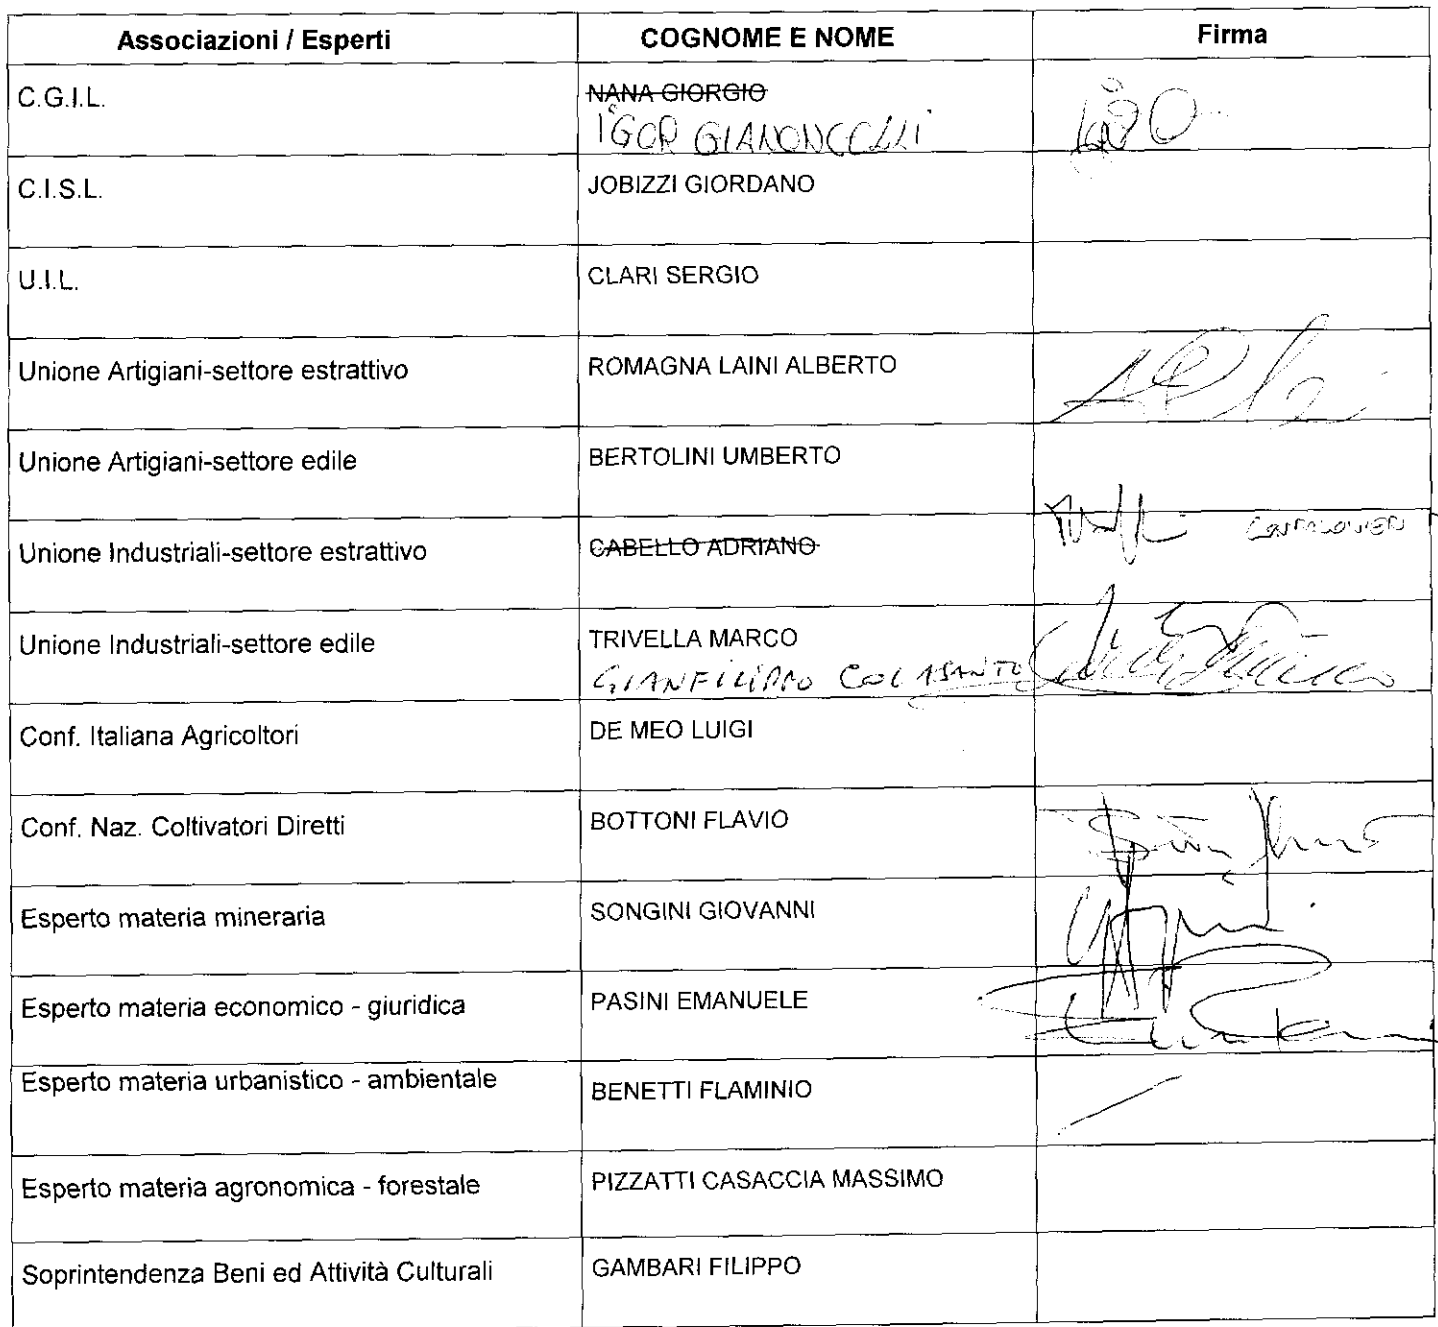 Associazioni / Esperti COGNOME E NOME Firma
C.G.I.L. NANA GIORGIO
IGOR GIANONCELLI
C.I.S.L. JOBIZZI GIORDANO
U.I.L. CLARI SERGIO
Unione Artigiani-settore estrattivo ROMAGNA LAINI ALBERTO
Unione Artigiani-settore edile BERTOLINI UMBERTO
Unione Industriali-settore estrattivo CABELLO ADRIANO
Unione Industriali-settore edile TRIVELLA MARCO
GIANFILIPPO COLASANTO
Conf. Italiana Agricoltori DE MEO LUIGI
Conf. Naz. Coltivatori Diretti BOTTONI FLAVIO
Esperto materia mineraria SONGINI GIOVANNI
Esperto materia economico - giuridica PASINI EMANUELE
Esperto materia urbanistico - ambientale BENETTI FLAMINIO
Esperto materia agronomica - forestale PIZZATTI CASACCIA MASSIMO
Soprintendenza Beni ed Attività Culturali GAMBARI FILIPPO